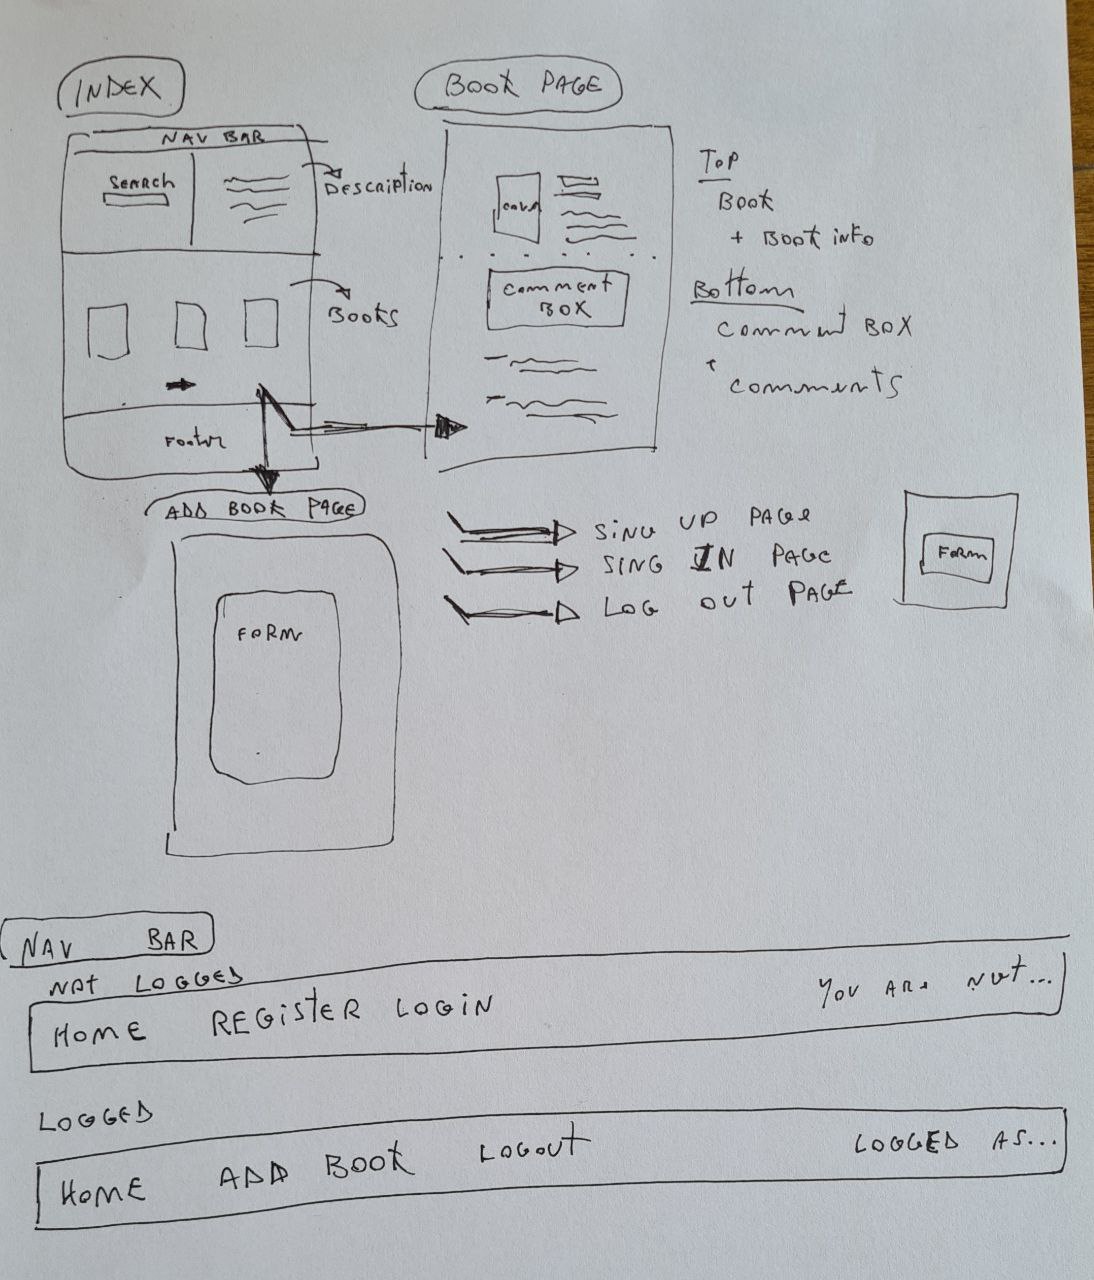 INDEX
NAV BAR
SEARCH
DESCRIPTION
BOOKS
FOOTER
BOOK PAGE
COVER
COMMENT
BOX
TOP
BOOK
+ BOOK INFO
BOTTOM
COMMENT BOX
+
COMMENTS
ADD BOOK PAGE
FORM
SING UP PAGE
SING IN PAGE
LOG OUT PAGE
FORM
NAV BAR
NOT LOGGED
HOME REGISTER LOGIN YOU ARE NOT...
LOGGED
HOME ADD BOOK LOGOUT LOGGED AS...